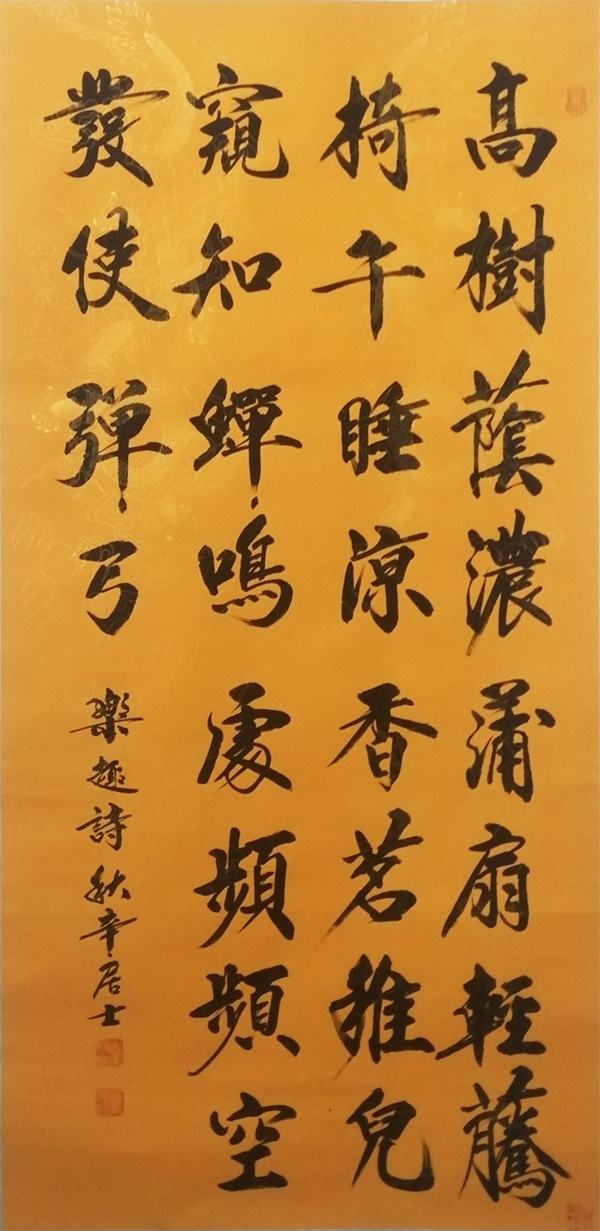 高樹蔭濃蒲扇輕藤
椅午睡涼香茗稚兒
窺知蟬鳴處頻頻空
發使弹弓
樂趣詩秋辛居士